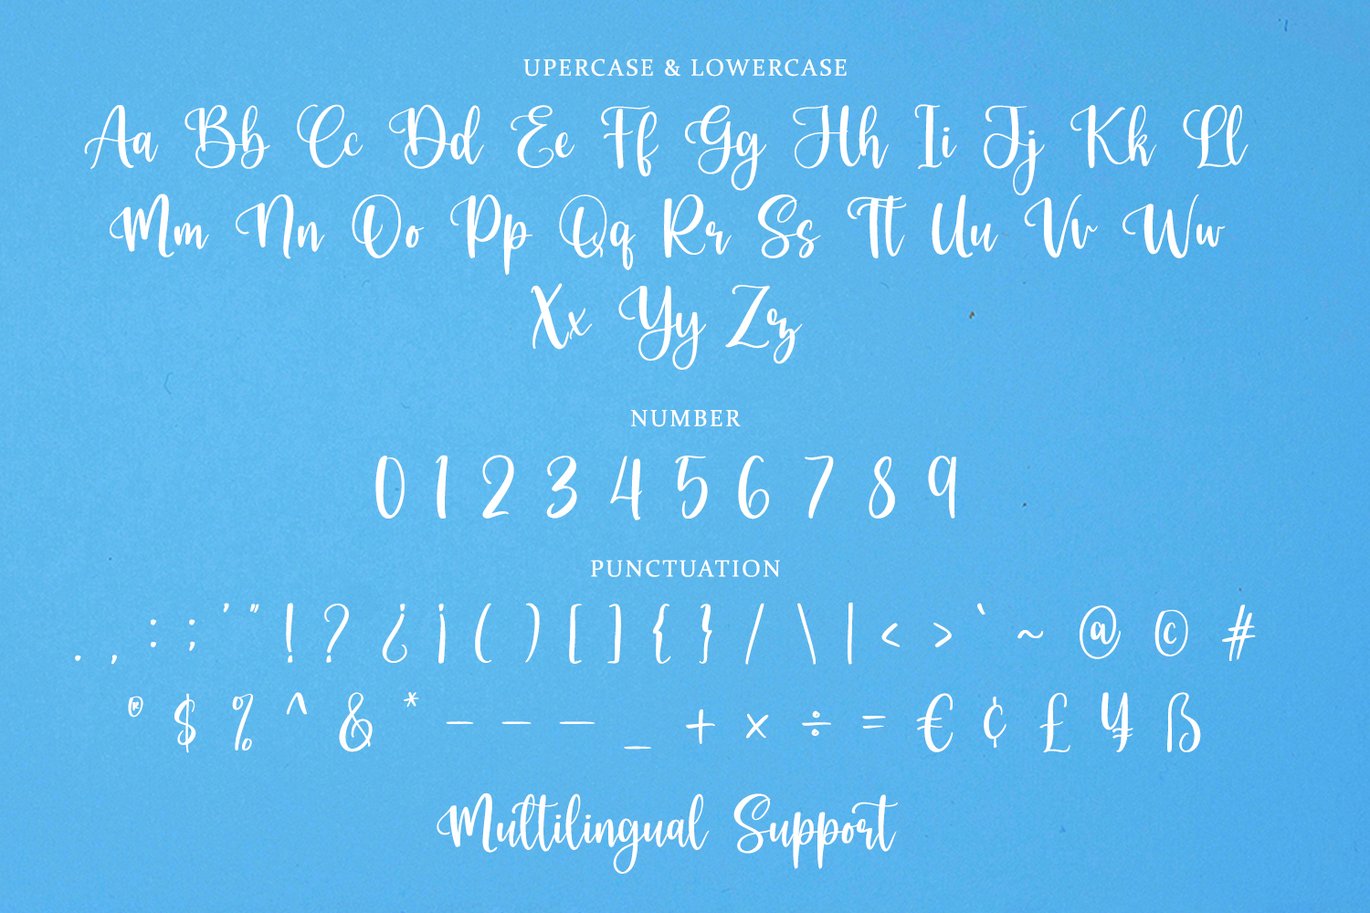 UPERCASE & LOWERCASE
Aa Bb Cc Dd Ee Ff Gg Hh Ii Jj Kk Ll
Mm Nn Oo Pp Qq Rr Ss Tt Uu Vv Ww
Xx Yy Zz
NUMBER
0 1 2 3 4 5 6 7 8 9
PUNCTUATION
. , : ; ' " ! ? ¿ ¡ ( ) [ ] { } / \ | < > ` ~ @ © #
® $ % ^ & * – – — _ + × ÷ = € ¢ £ ¥ ß
Multilingual Support